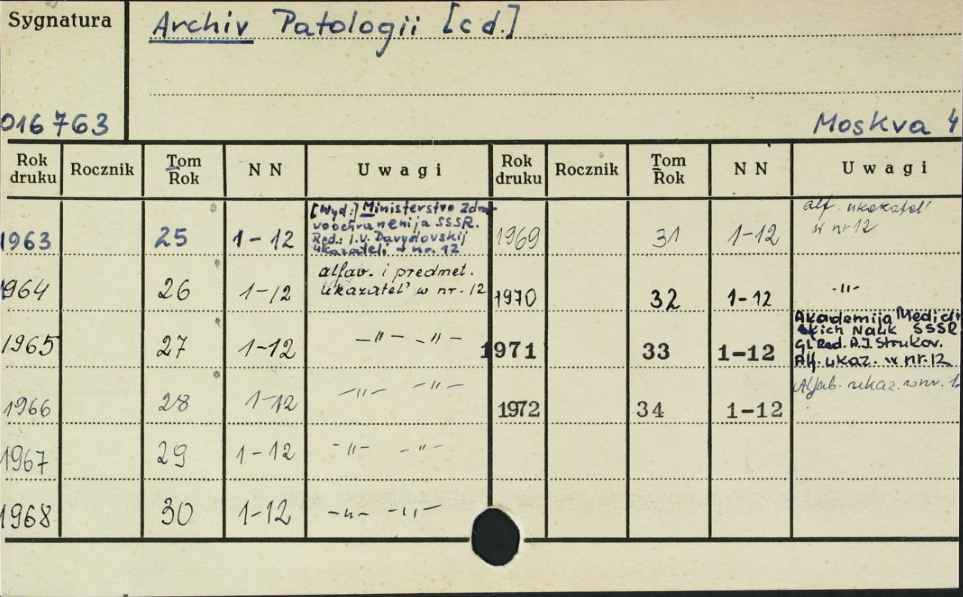 Sygnatura
Archiv Patologii [cd.]
016763
Moskva 4
Rok druku Rocznik Tom Rok N N Uwagi Rok druku Rocznik Tom Rok N N Uwagi
1963 25 1-12 [Wyd:] Ministerstvo Zdra-
voochranenija SSSR.
Red.: I.V. Davydovskij
ukazateli w nr. 12
1969 31 1-12 alf. ukazatel'
w nr 12
1964 26 1-12 alfav. i predmet.
ukazatel' w nr. 12
1970 32 1-12 -"-
1965 27 1-12 -"- -"-
1971 33 1-12 Akademija Medici
skich Nauk SSSR
Gl. Red. A.I. Strukov.
Alf. ukaz. w nr. 12
1966 28 1-12 -"- -"-
1972 34 1-12 Alfab. ukaz. w nr. 12
1967 29 1-12 -"- -"-
1968 30 1-12 -"- -"-